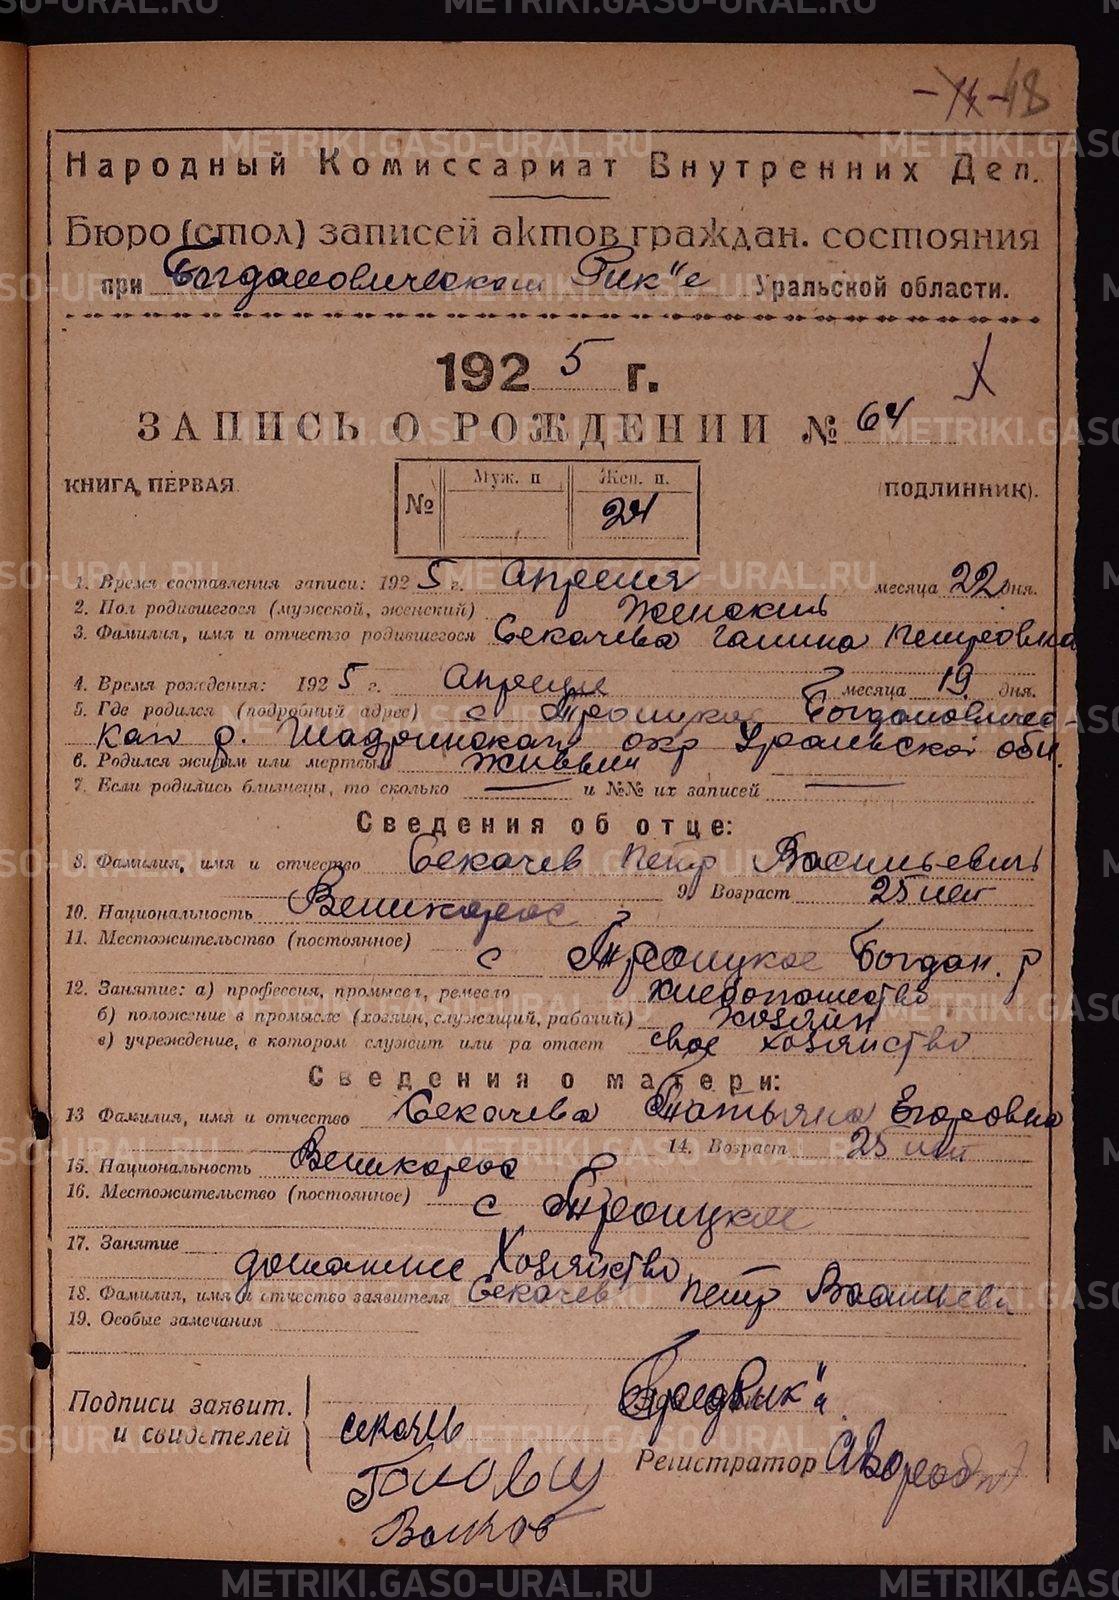 18
Народный Комиссариат Внутренних Дел.
Бюро (стол) записей актов граждан. состояния
при Богдановическом Рик"е Уральской области.
1925 г.
ЗАПИСЬ О РОЖДЕНИИ № 64
КНИГА ПЕРВАЯ. (ПОДЛИННИК).
№ Муж. п Жен. п.
24
1. Время составления записи: 1925 г. Апреля месяца 22 дня.
2. Пол родившегося (мужской, женский) Женский
3. Фамилия, имя и отчество родившегося Секачева Галина Петровна
4. Время рождения: 1925 г. Апреля месяца 19 дня.
5. Где родился (подробный адрес) с Троицкое Богдановичес-
каго р. Шадринскаго окр Уральской обл.
6. Родился живым или мертвым живым
7. Если родились близнецы, то сколько — и №№ их записей —
Сведения об отце:
8. Фамилия, имя и отчество Секачев Петр Васильевич
9. Возраст 25 лет
10. Национальность Великорос
11. Местожительство (постоянное)
с Троицкое Богдан. р
12. Занятие: а) профессия, промысел, ремесло хлебопашество
б) положение в промысле (хозяин, служащий, рабочий) хозяин
в) учреждение, в котором служит или ра отает свое хозяйство
Сведения о матери:
13 Фамилия, имя и отчество Секачева Татьяна Егоровна
14. Возраст 25 лет
15. Национальность Великорос
16. Местожительство (постоянное) с Троицкое
17. Занятие домашнее хозяйство
18. Фамилия, имя и отчество заявителя Секачев Петр Васильеви
19. Особые замечания
Подписи заявит. и свидетелей
Секачев
Волков
ПредРик"а
Регистратор
METRIKI.GASO-URAL.RU